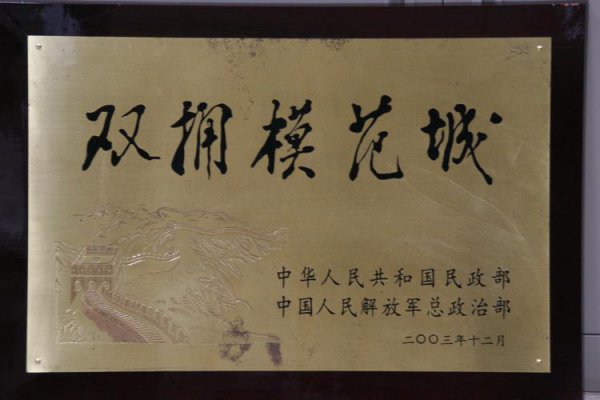 双拥模范城
中华人民共和国民政部
中国人民解放军总政治部
二〇〇三年十二月